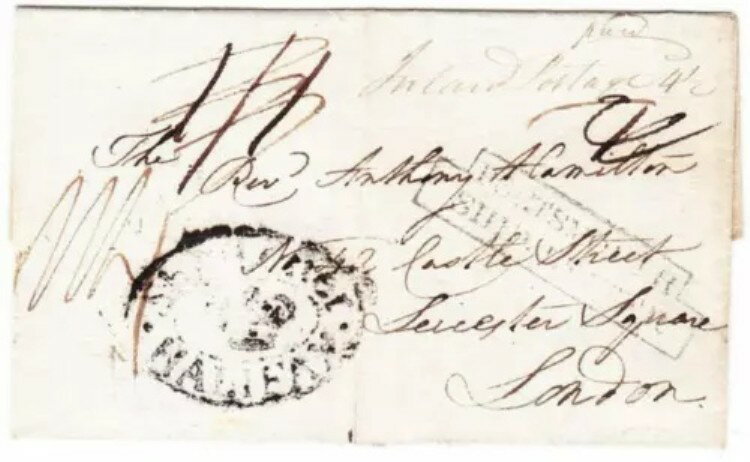 Paid
Inland Postage 4½
1/1
The Revd Anthony Hamilton
No 42 Castle Street
Leicester Square
London.
HALIFAX
PORTSMOUTH
SHIP